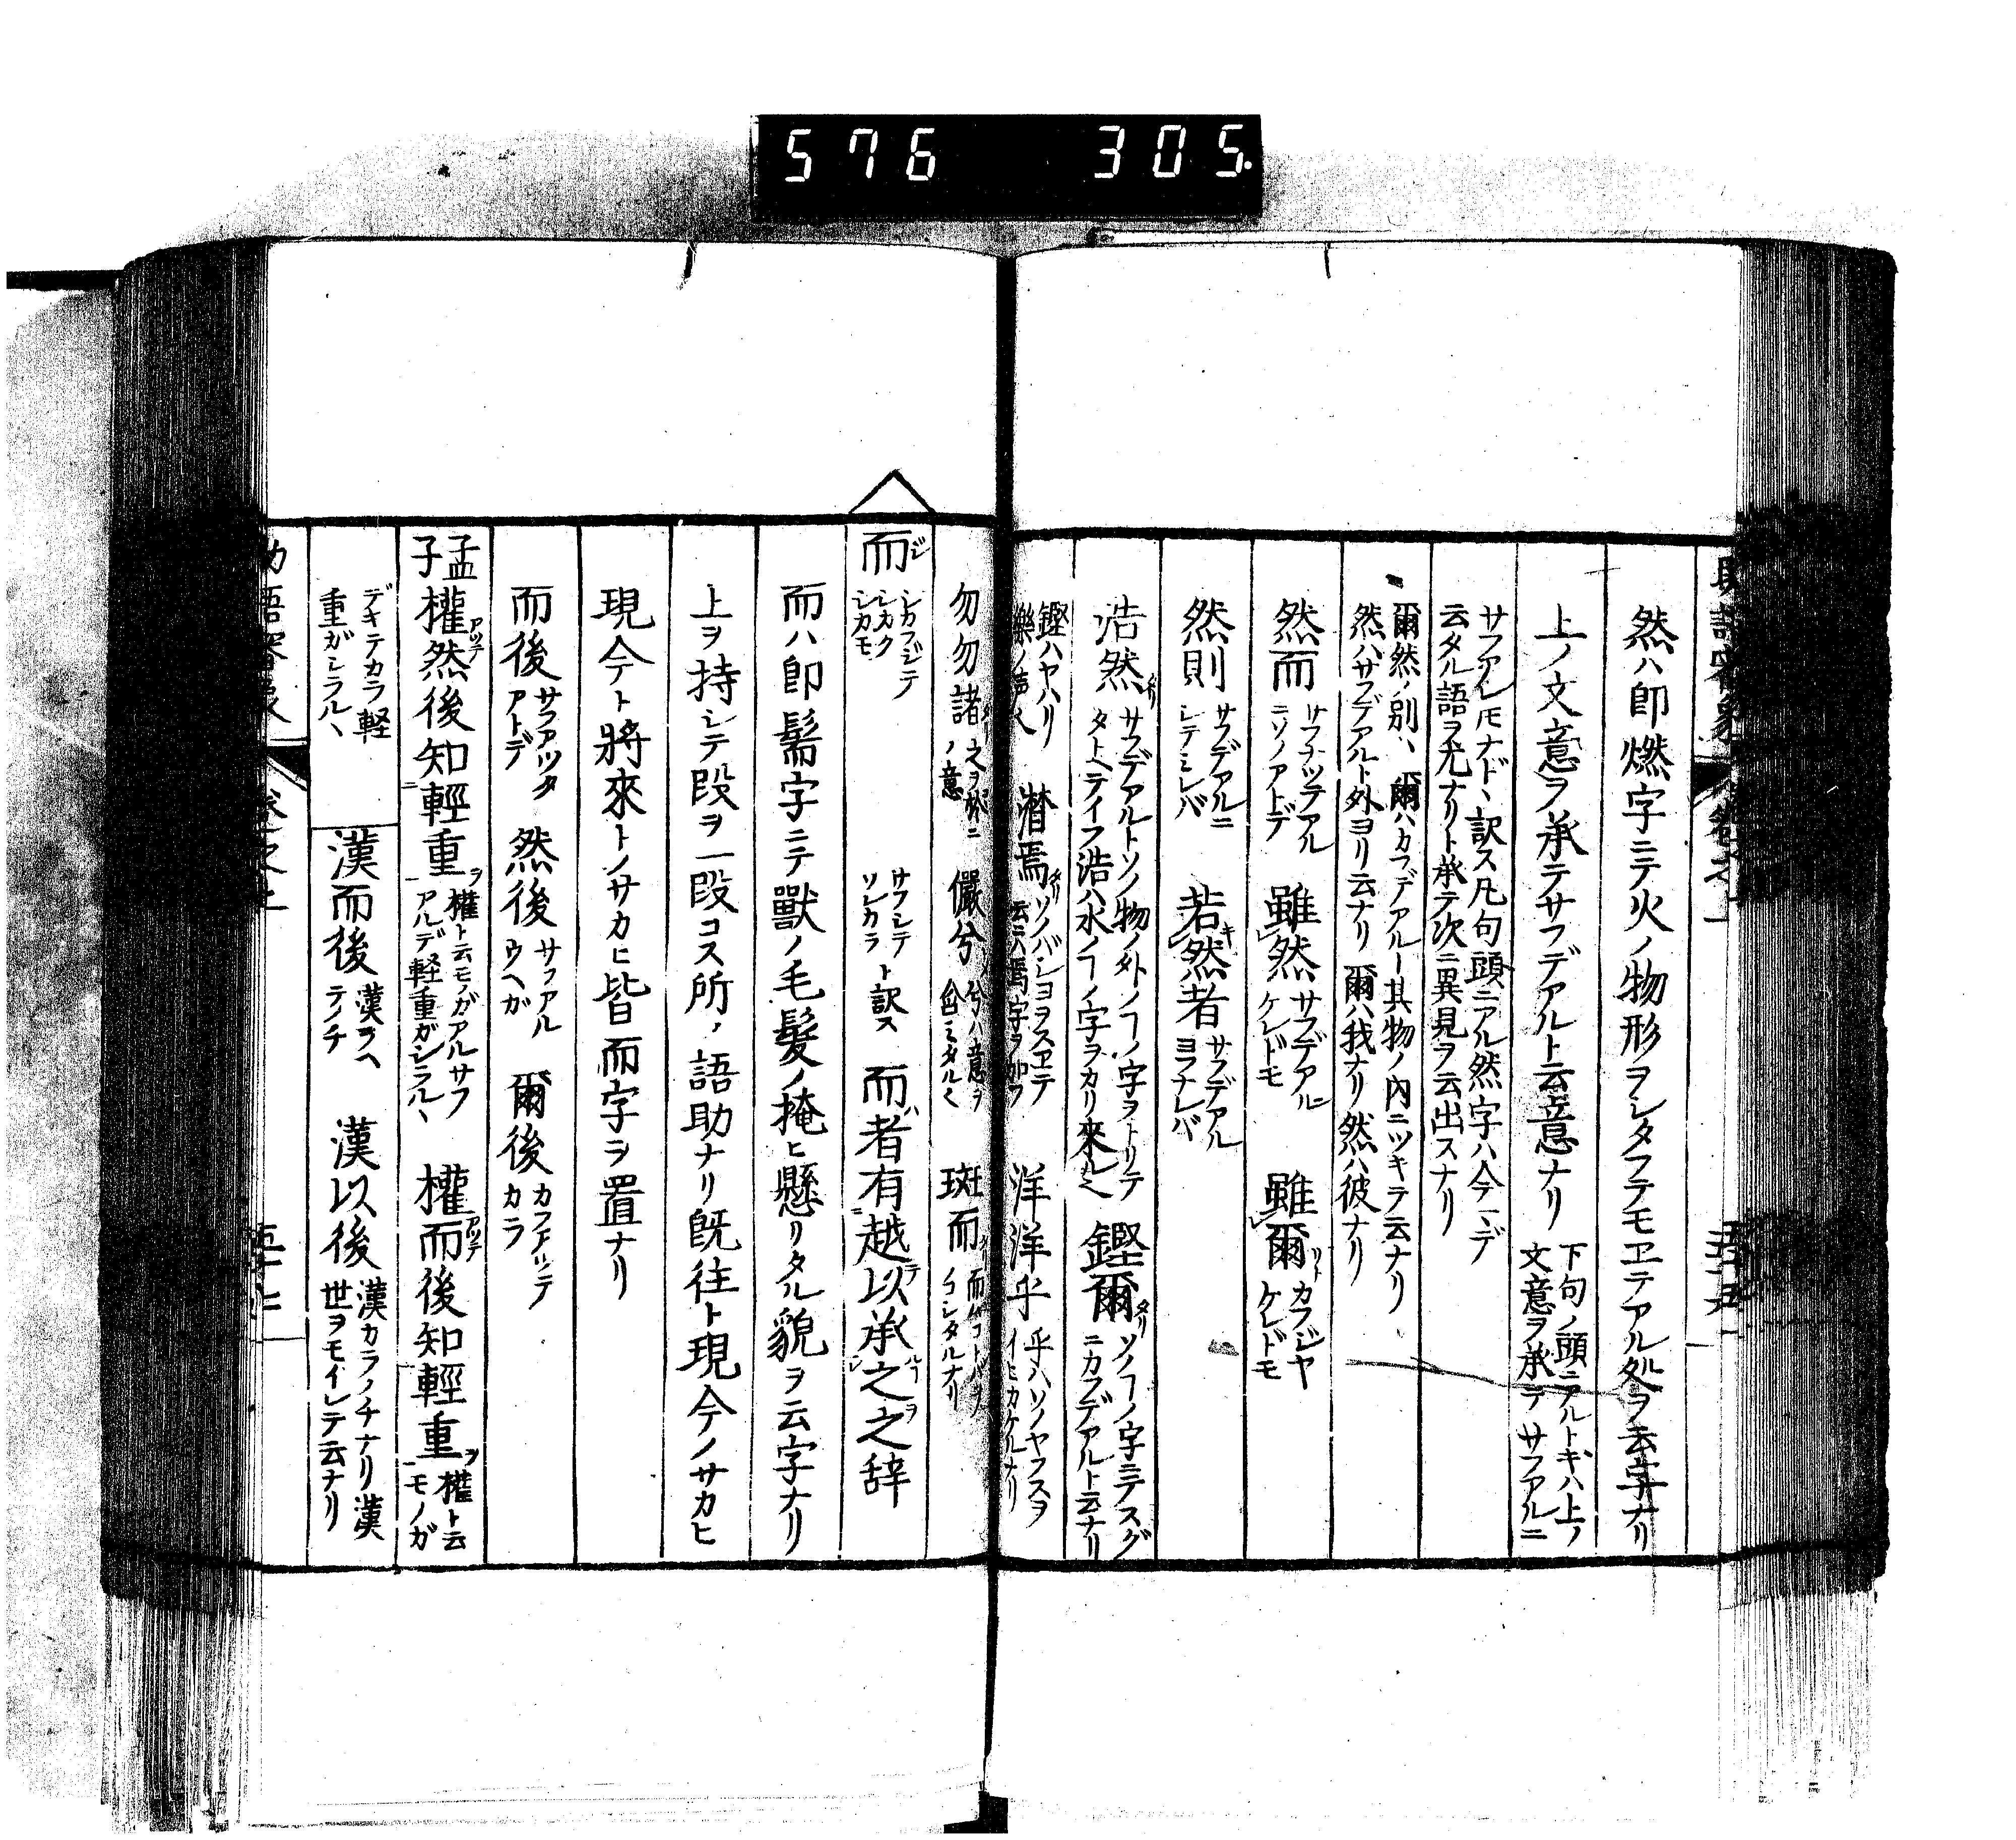 576 305
然ハ即燃字ニテ火ノ物形ヲシタフテモヱテアル処ヲ云字ナリ
上ノ文意ヲ承テサフデアルト云意ナリ
下句ノ頭ニアルトキハ上ノ
文意ヲ承テサフアルニ
サフアレ𪜈ナドヽ訳ス凡句頭ニアル然字ハ今マデ
云タル語ヲ尤ナリト承テ次ニ異見ヲ云出スナリ
爾然ノ別ハ爾ハカフデアルト其物ノ内ニツキテ云ナリ
然ハサフデアルト外ヨリ云ナリ 爾ハ我ナリ然ハ彼ナリ
然而
サフナツテアル
ニソノアトデ
雖然
サフデアル
ケレドモ
雖爾
カフジヤ
ケレドモ
然則
サフデアルニ
シテミレバ
若然者
サフデアル
ヨフナレバ
浩然
サフデアルトソノ物ノ外ノヿノ字ヲトリテ
タトヘテイフ浩ハ水ノヿノ字ヲカリ来ル
鏗爾
ソノヿノ字ニテスグ
ニカフデアルト云ナリ
鏗ハヤハリ
樂ノ声
潸焉
ソノバショヲスヱテ
云云焉字ヲ加フ
洋洋乎
乎ハソノヤフスヲ
イヒカケルナリ
勿勿諸
之ヲ於ニ
ノ意
儼兮
兮ハ意ヲ
斑而
ノコシタルナリ
而
シカフジテ
シカク
シカモ
サフシテ
ソレカラ
ト訳ス
而者有越以承之之辞
而ハ即髵字ニテ獸ノ毛髮ノ掩ヒ懸リタル貌ヲ云字ナリ
上ヲ持シテ段ヲ一段コス所ノ語助ナリ既往ト現今ノサカヒ
現今ト將來トノサカヒ皆而字ヲ置ナリ
而後
サフアツタ
アトデ
然後
サフアル
ウヘガ
爾後
カフアツテ
カラ
孟子
權然後知輕重
權ト云モノガアルサフ
アルデ軽重ガシラルヽ
權而後知輕重
權ト云
モノガ
デキテカラ軽
重ガシラルヽ
漢而後
漢ヲヘ
テノチ
漢以後
漢カラノチナリ漢
世ヲモイレテ云ナリ